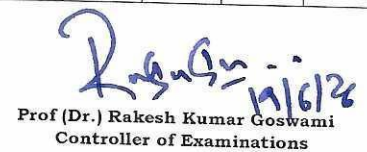 19/6/26
Prof (Dr.) Rakesh Kumar Goswami
Controller of Examinations